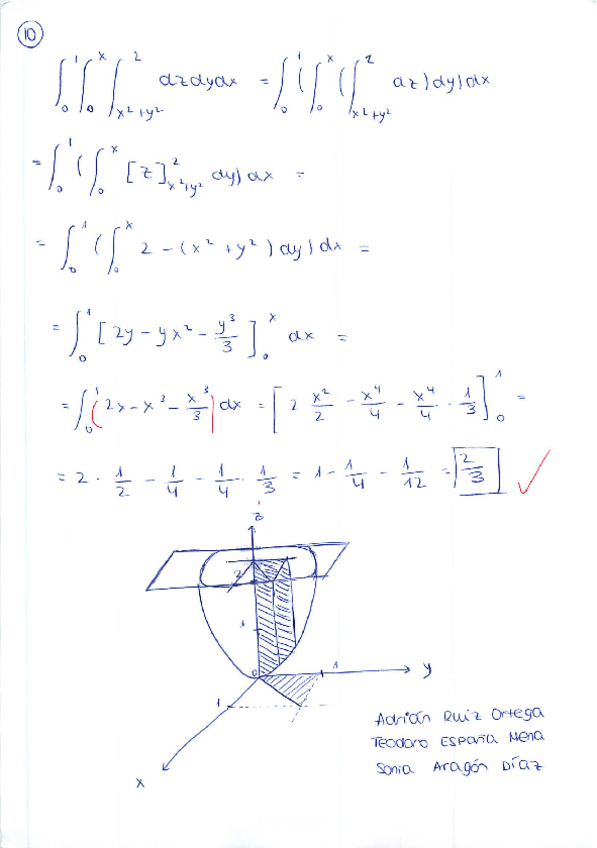 10
∫₀¹ ∫₀ˣ ∫_{x²+y²}² dzdydx = ∫₀¹ (∫₀ˣ (∫_{x²+y²}² dz) dy) dx
= ∫₀¹ (∫₀ˣ [z]_{x²+y²}² dy) dx =
= ∫₀¹ (∫₀ˣ 2 - (x² + y²) dy) dx =
= ∫₀¹ [2y - yx² - y³/3]₀ˣ dx =
= ∫₀¹ (2x - x³ - x³/3) dx = [2 x²/2 - x⁴/4 - x⁴/4 · 1/3]₀¹ =
= 2 · 1/2 - 1/4 - 1/4 · 1/3 = 1 - 1/4 - 1/12 = 2/3 ✓
z
2
1
0
1
y
1
x
Adrián Ruiz Ortega
Teodoro España Mena
Sonia Aragón Díaz